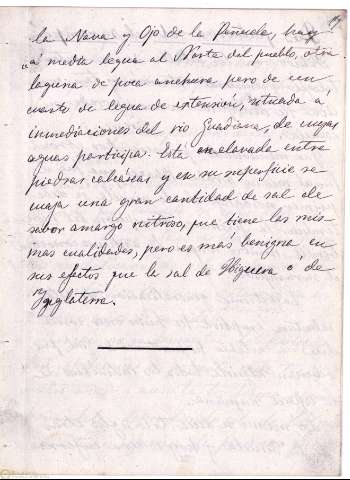 la Nava y Ojo de la Peñuela, hay
a media legua al Norte del pueblo, otra
laguna de poca anchura pero de un
cuarto de legua de extensión, situada á
inmediaciones del rio Guadiana, de cuyas
aguas participa. Esta enclavada entre
piedras calcáreas y en su superficie se
cuaja una gran cantidad de sal de
sabor amargo nitroso, que tiene las mis
mas cualidades, pero es mas benigna en
sus efectos que la sal de Higuera ó de
Ynglaterra.